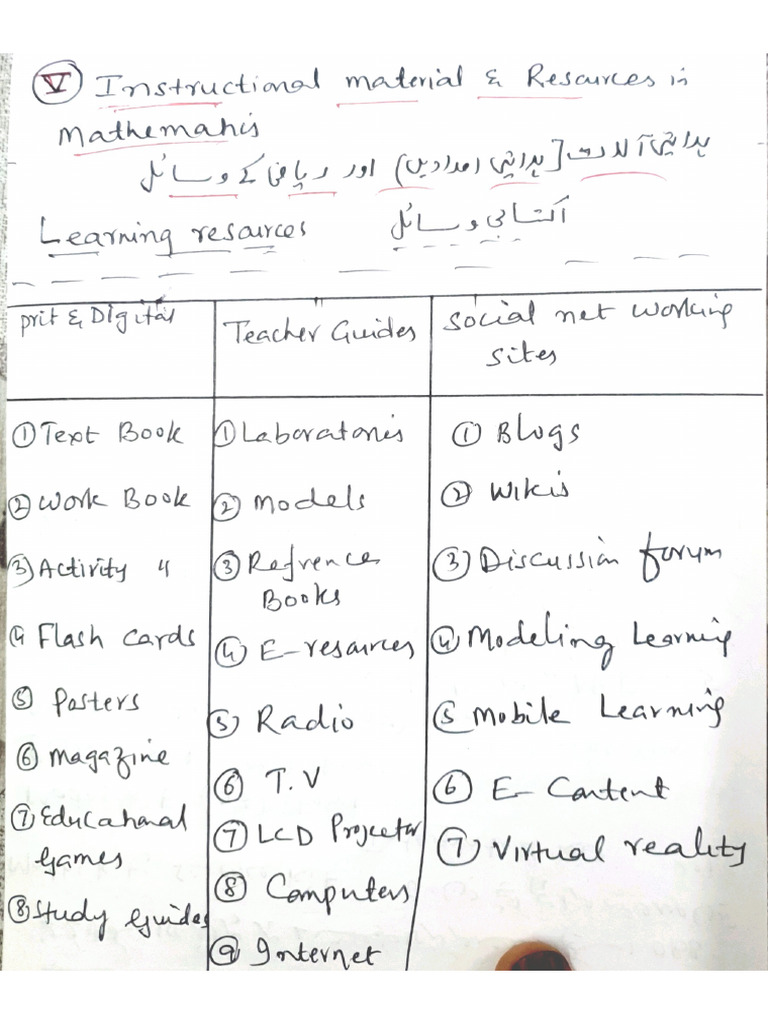 V Instructional material & Resources in
Mathematics
ہدایتی آلات [ہدایتی امدادیں) اور ریاضی کے وسائل
Learning resources اکتسابی وسائل
prit & Digital
Teacher Guides
Social net working
Sites
① Text Book
② Work Book
③ Activity "
④ Flash cards
⑤ Posters
⑥ Magazine
⑦ Educational
games
⑧ Study Guides
① Laboratories
② Models
③ Refrence
Books
④ E-resources
⑤ Radio
⑥ T.V
⑦ LCD Projector
⑧ Computers
⑨ Internet
① Blogs
② Wikis
③ Discussion forum
④ Modeling Learning
⑤ Mobile Learning
⑥ E-Content
⑦ Virtual reality